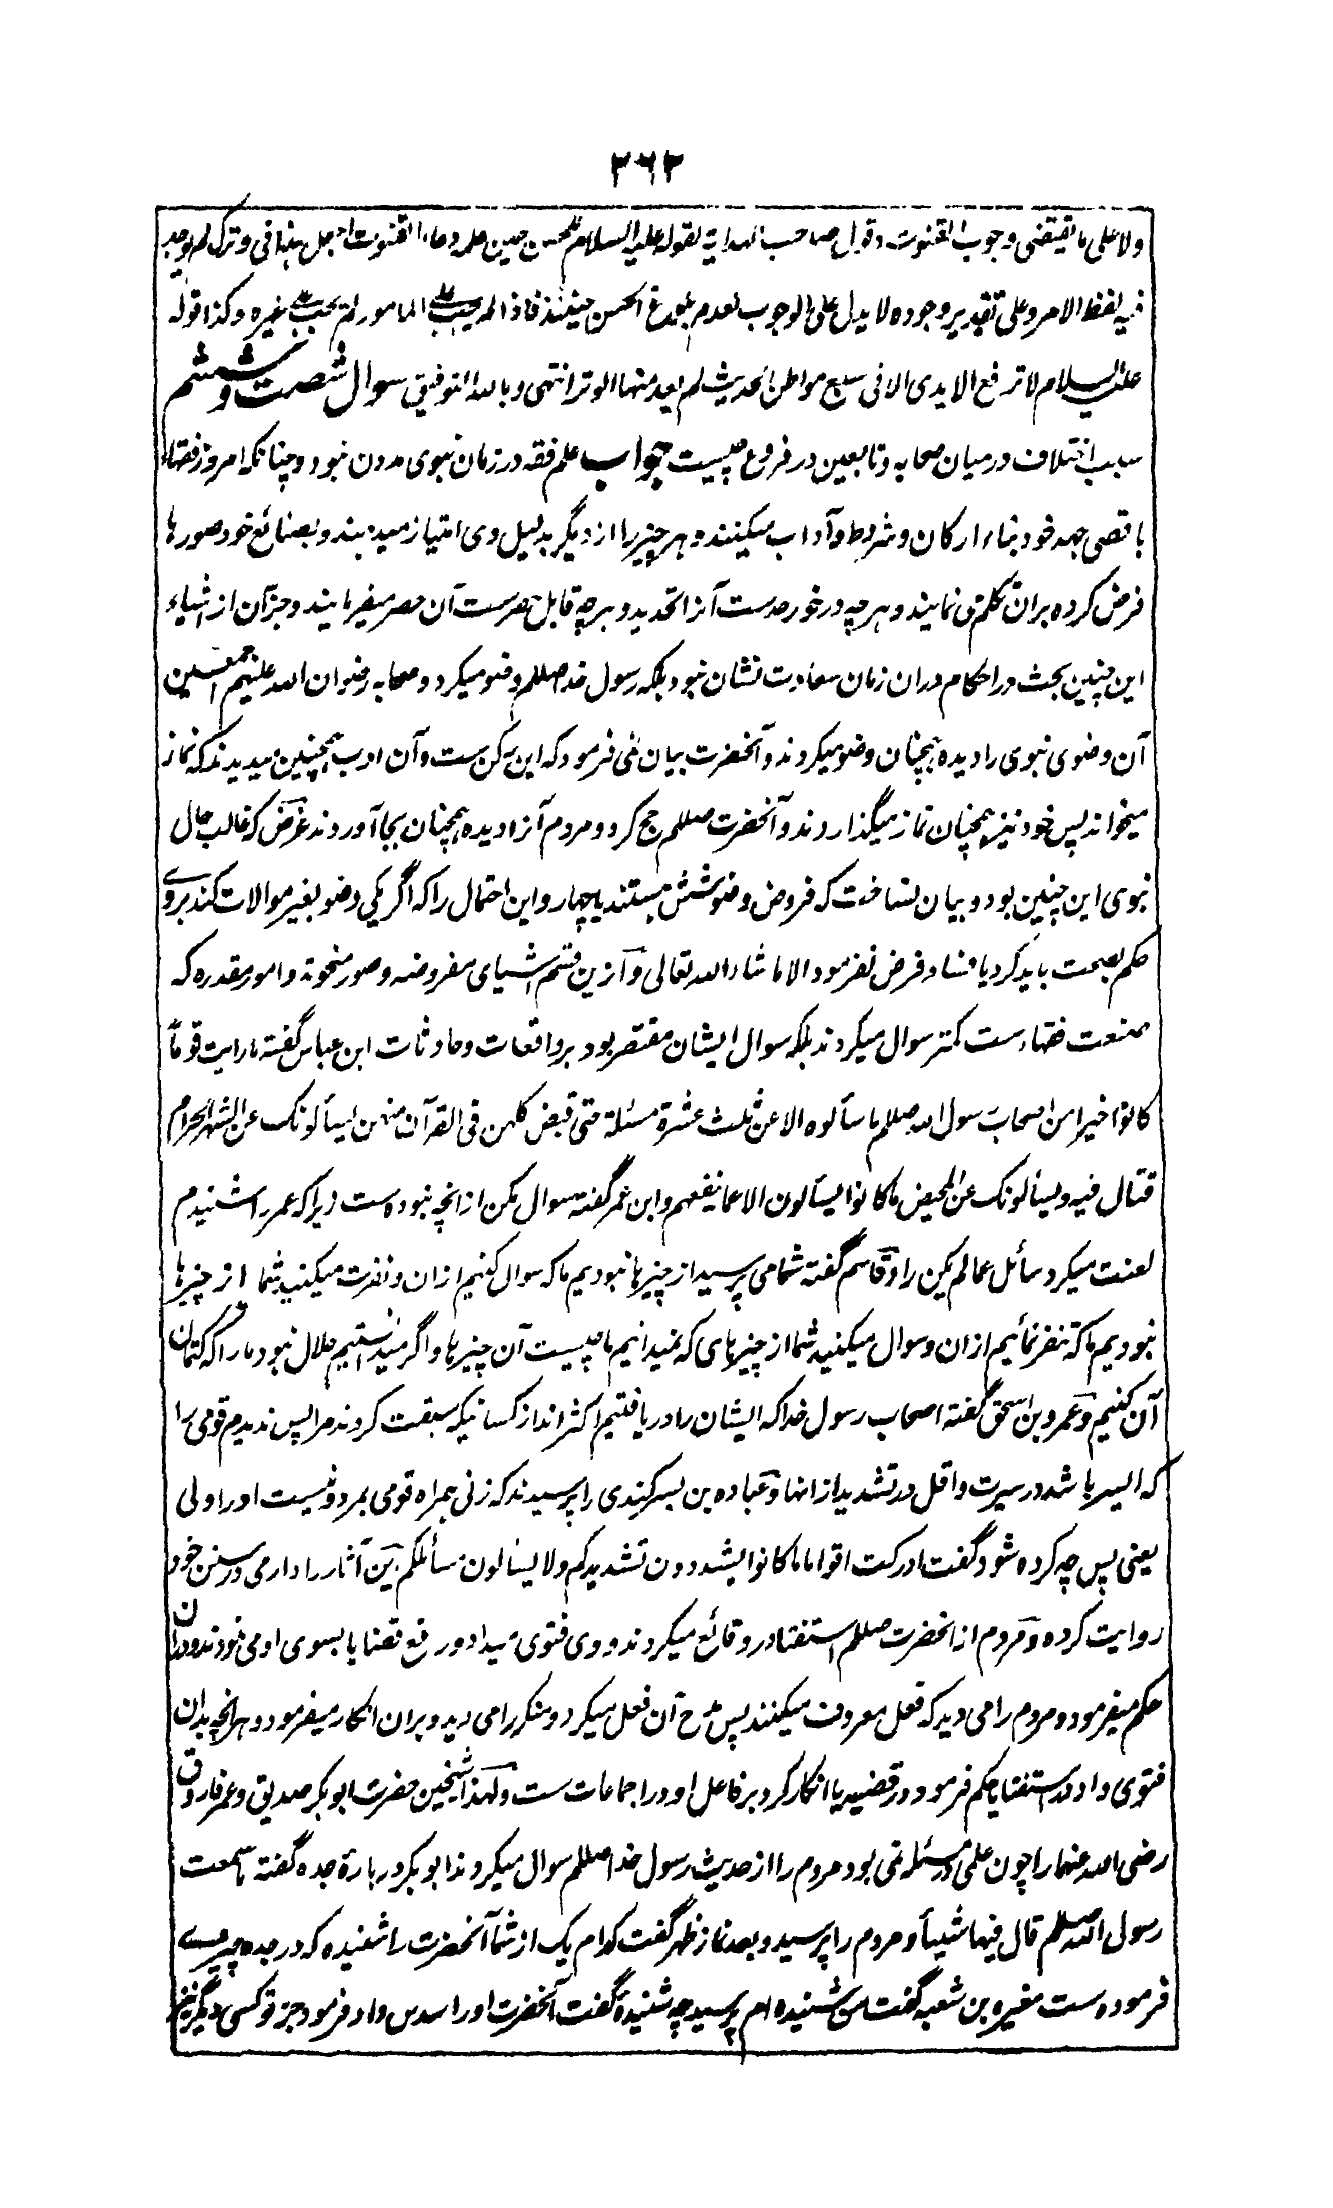 ۳۶۲
ولا علی ما یقتضی وجوب القنوت وقول صاحب الهدایه لقوله علیه السلام للحسن حین علمه دعاء القنوت اجعل هذا فی وترک لم یوجد
فیه لفظ الامر وعلی تقدیر وجوده لا یدل علی الوجوب لعدم بلوغ الحسن حینئذ فاذا لم یجب علی المامور لم یجب علی غیره وکذا قوله
علیه السلام لا ترفع الایدی الا فی سبع مواطن الحدیث لم یعد منها الوتر انتهی وبالله التوفیق سوال شصت و ششم
سبب اختلاف در میان صحابه و تابعین در فروع چیست جواب علم فقه در زمان نبوی مدون نبود و چنانکه امروز فقهاء
باقصی جهد خود بناء ارکان و شروط و آداب میکنند و هر چیز را از دیگر بدلیل وی امتیاز میدهند و بصنائع خود صورها
فرض کرده بران تکلم می نمایند و هر چه در خور حدست آنرا تحدید و هر چه قابل حصرست آن حصر میفرمایند و جز آن از اشیاء
این چنین بحث در احکام دران زمان سعادت نشان نبود بلکه رسول خدا صللم وضو میکرد و صحابه رضوان الله علیهم اجمعین
آن وضوی نبوی را دیده همچنان وضو میکردند و آنحضرت بیان نمی فرمود که این رکن ست و آن ادب همچنین میدیدند که نماز
میخواند پس خود نیز همچنان نماز میگذاردند و آنحضرت صللم حج کرد و مردم آنرا دیده همچنان بجا آوردند غرض که غالب حال
نبوی این چنین بود و بیان نساخت که فروض وضو شش هستند یا چهار و این احتمال را که اگر یکی وضو بغیر موالات کند بروے
حکم بصحت باید کرد یا فساد فرض نفرمود الا ما شاء الله تعالی و ازین قسم اشیای مفروضه و صور منحوته و امور مقدره که
صنعت فقهاءست کمتر سوال میکردند بلکه سوال ایشان مقتصر بود بر واقعات و حادثات ابن عباس گفته ما رایت قوماً
کانوا خیرا من اصحاب رسول الله صللم ما سألوه الا عن ثلث عشرة مسئلة حتی قبض کلهن فی القرآن منهن یسألونک عن الشهر الحرام
قتال فیه ویسألونک عن المحیض ما کانوا یسألون الا عما ینفعهم و ابن عمر گفته سوال مکن از انچه نبوده ست زیرا که عمر را شنیدم
لعنت میکرد سائل عما لم یکن را و قاسم گفته شما می پرسید از چیزها نبودیم ما که سوال کنیم ازان و نفرت میکنید شما از چیزها
نبودیم ما که تنفر نمائیم ازان و سوال میکنید شما از چیزهای که نمیدانیم ما چیست آن چیزها و اگر میدانستیم حلال نبود ما را که کتمان
آن کنیم و عمرو بن اسحق گفته اصحاب رسول خدا که ایشان را دریافتیم اکثر اند از کسانیکه سبقت کردند مرا پس ندیدم قومی را
که ایسر باشد در سیرت و اقل در تشدید از انها و عباده بن بسر کندی را پرسیدند که زنی همراه قومی بمرد و نیست او را ولی
یعنی پس چه کرده شود گفت ادرکت اقواما ما کانوا یشددون تشدیدکم ولا یسألون مسائلکم این آثار را دارمی در سنن خود
روایت کرده و مردم از آنحضرت صللم استفتا در وقائع میکردند و وی فتوی میداد و رفع قضایا بسوی او می نمودند و دران
حکم میفرمود و مردم را می دید که فعل معروف میکنند پس مدح آن فعل میکرد و منکر را می دید و بران انکار میفرمود و هرانچه بدان
فتوی داد در استفتا یا حکم فرمود در قضیه یا انکار کرد بر فاعل او در اجماعات ست و لهذا شیخین حضرت ابو بکر صدیق و عمر فاروق
رضی الله عنهما را چون علمی در مسئله نمی بود مردم را از حدیث رسول خدا صللم سوال میکردند ابو بکر در بارۀ جده گفته ما سمعت
رسول الله صللم قال فیها شیئاً و مردم را پرسید و بعد نماز ظهر گفت کدام یک از شما آنحضرت را شنیده که در جده چیزے
فرموده ست مغیره بن شعبه گفت من شنیده ام پرسید چه شنیدۀ گفت آنحضرت او را سدس داد فرمود جز تو کسی دیگر نیز